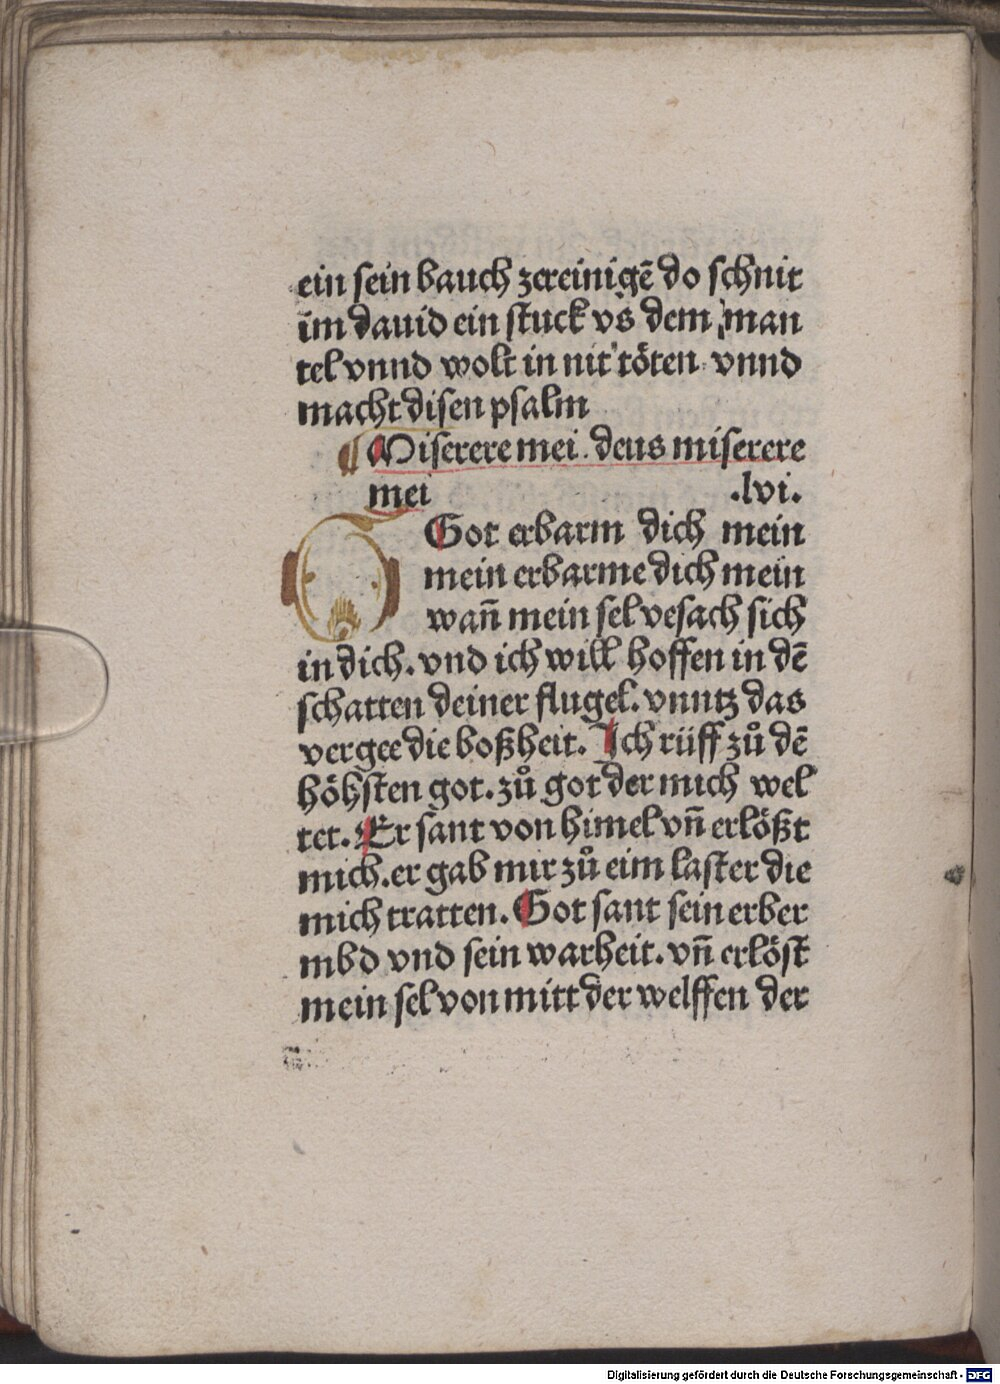 ein sein bauch zereinigē do schnit
im̄ dauid ein stuck vs dem man
tel vnnd wolt in nit töten vnnd
macht disen psalm
¶ Miserere mei. deus miserere
mei .lvi.
O Got erbarm dich mein
mein erbarme dich mein
wan̄ mein sel vesach sich
in dich. vnd ich will hoffen in dē
schatten deiner flugel. vnntz das
vergee die boßheit. Ich rüff zů dē
höhsten got. zů got der mich wel
tet. Er sant von himel vn̄ erlößt
mich. er gab mir zů eim laster die
mich tratten. Got sant sein erber
mbd vnd sein warheit. vn̄ erlöst
mein sel von mitt der welffen der
Digitalisierung gefördert durch die Deutsche Forschungsgemeinschaft - DFG